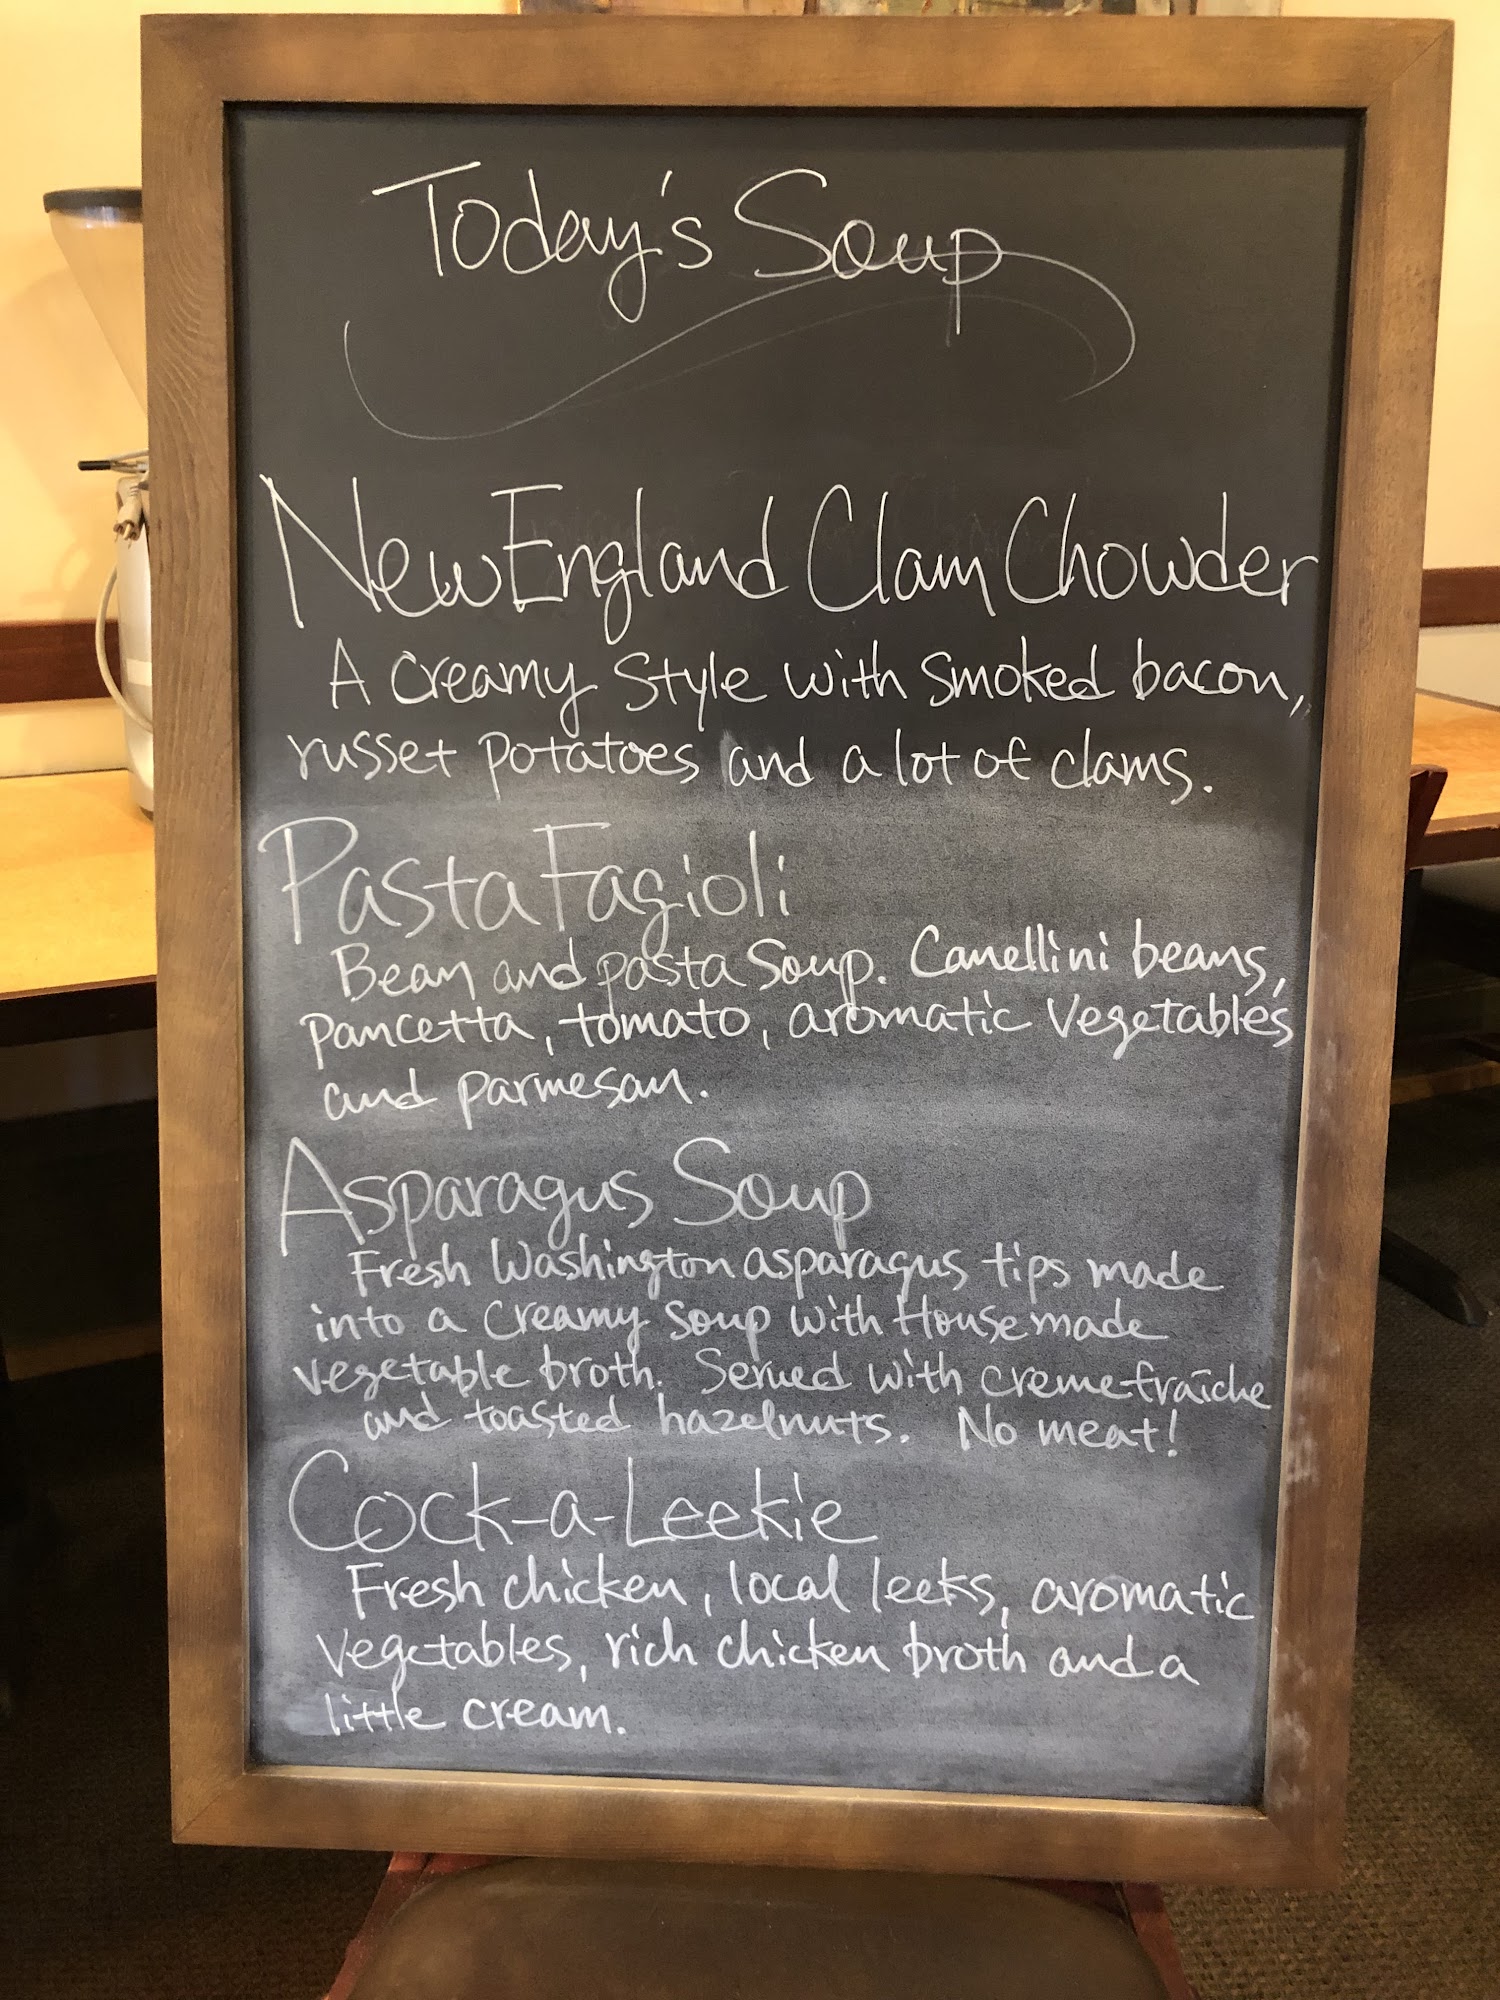 Today's Soup
New England Clam Chowder
A Creamy Style with smoked bacon,
russet potatoes and a lot of clams.
Pasta Fagioli
Bean and pasta Soup. Canellini beans,
pancetta, tomato, aromatic vegetables
and parmesan.
Asparagus Soup
Fresh Washington asparagus tips made
into a creamy soup with Housemade
vegetable broth. Served with creme fraîche
and toasted hazelnuts. No meat!
Cock-a-Leekie
Fresh chicken, local leeks, aromatic
vegetables, rich chicken broth and a
little cream.